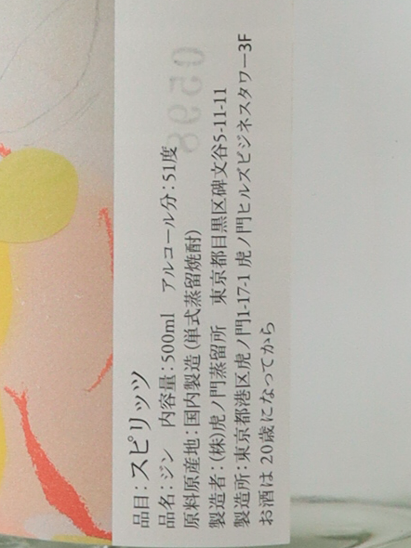 品目：スピリッツ
品名：ジン　内容量：500ml　アルコール分：51度
原料原産地：国内製造（単式蒸留焼酎）
製造者：（株）虎ノ門蒸留所　東京都目黒区碑文谷5-11-11
製造所：東京都港区虎ノ門1-17-1 虎ノ門ヒルズビジネスタワー3F
お酒は20歳になってから